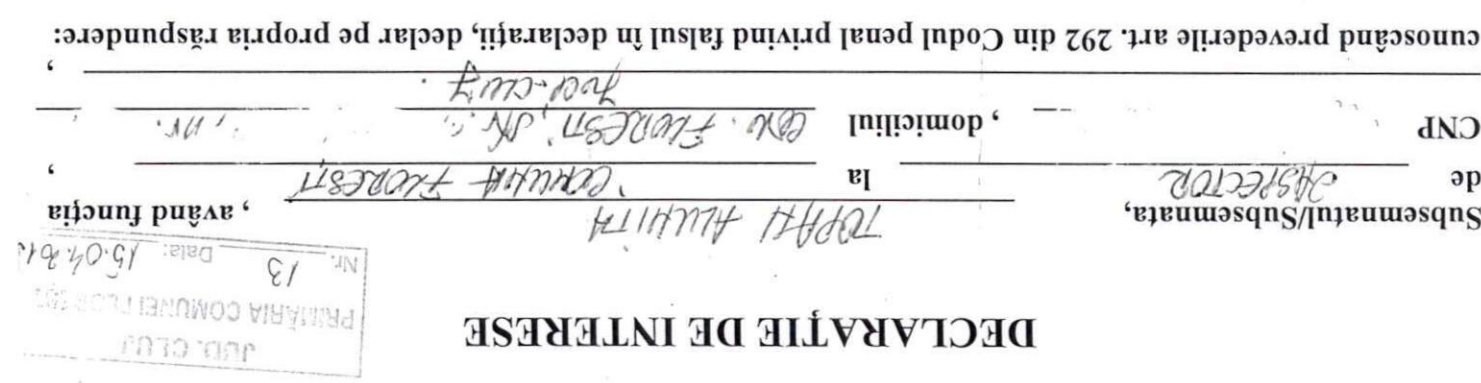 JUD. CLUJ
PRIMĂRIA COMUNEI
Nr. 13 Data: 15.04.201
DECLARAŢIE DE INTERESE
Subsemnatul/Subsemnata, TOPAN ALUNITA , având funcţia
de INSPECTOR la COMUNA FLORESTI ,
CNP , domiciliul COM. FLORESTI, , nr. ,
JUD. CLUJ. ,
cunoscând prevederile art. 292 din Codul penal privind falsul în declaraţii, declar pe propria răspundere: